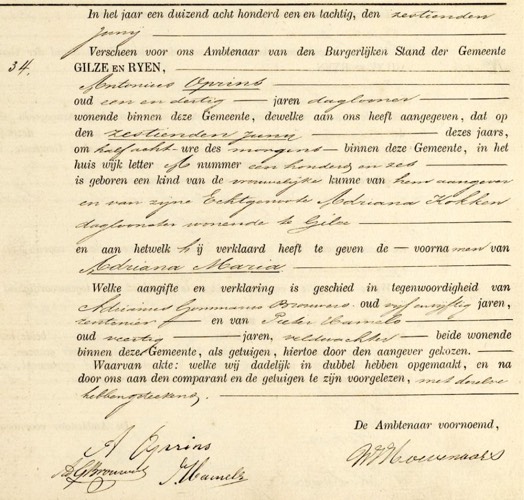 In het jaar een duizend acht honderd een en tachtig, den zestienden
Junij
Verscheen voor ons Ambtenaar van den Burgerlijken Stand der Gemeente
34. GILZE EN RYEN,
Antonius Oprins
oud een en dertig jaren daglooner
wonende binnen deze Gemeente, dewelke aan ons heeft aangegeven, dat op
den zestienden Junij dezes jaars,
om half acht ure des morgens binnen deze Gemeente, in het
huis wijk letter A nummer een honderd en zes
is geboren een kind van de vrouwelijke kunne van hem aangever
en van zijne Echtgenoote Adriana Kokken
dagloonster wonende te Gilze
en aan hetwelk hij verklaard heeft te geven de voornamen van
Adriana Maria
Welke aangifte en verklaring is geschied in tegenwoordigheid van
Adrianus Gommarus Brouwers oud vijf en vijftig jaren,
rentenier en van Pieter Hamels
oud veertig jaren, veldwachter beide wonende
binnen deze Gemeente, als getuigen, hiertoe door den aangever gekozen.
Waarvan akte: welke wij dadelijk in dubbel hebben opgemaakt, en na
door ons aan den comparant en de getuigen te zijn voorgelezen, met dezelve
hebben geteekend.
De Ambtenaar voornoemd,
A Oprins
A G Brouwers P. Hamels